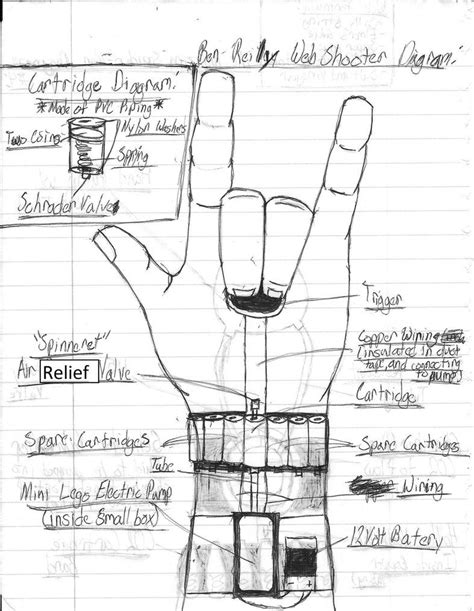 Ben-Reilly Web Shooter Diagram:
Cartridge Diagram:
*Made of PVC Piping*
Nylon Washers
Spring
Schrader Valve
Trigger
"Spinneret"
Air Relief Valve
Copper Wiring
(insulated in duct
tape, and connecting
to pump)
Cartridge
Spare Cartridges
Spare Cartridges
Tube
Wiring
Mini Lego Electric Pump
(inside small box)
12 Volt Batery